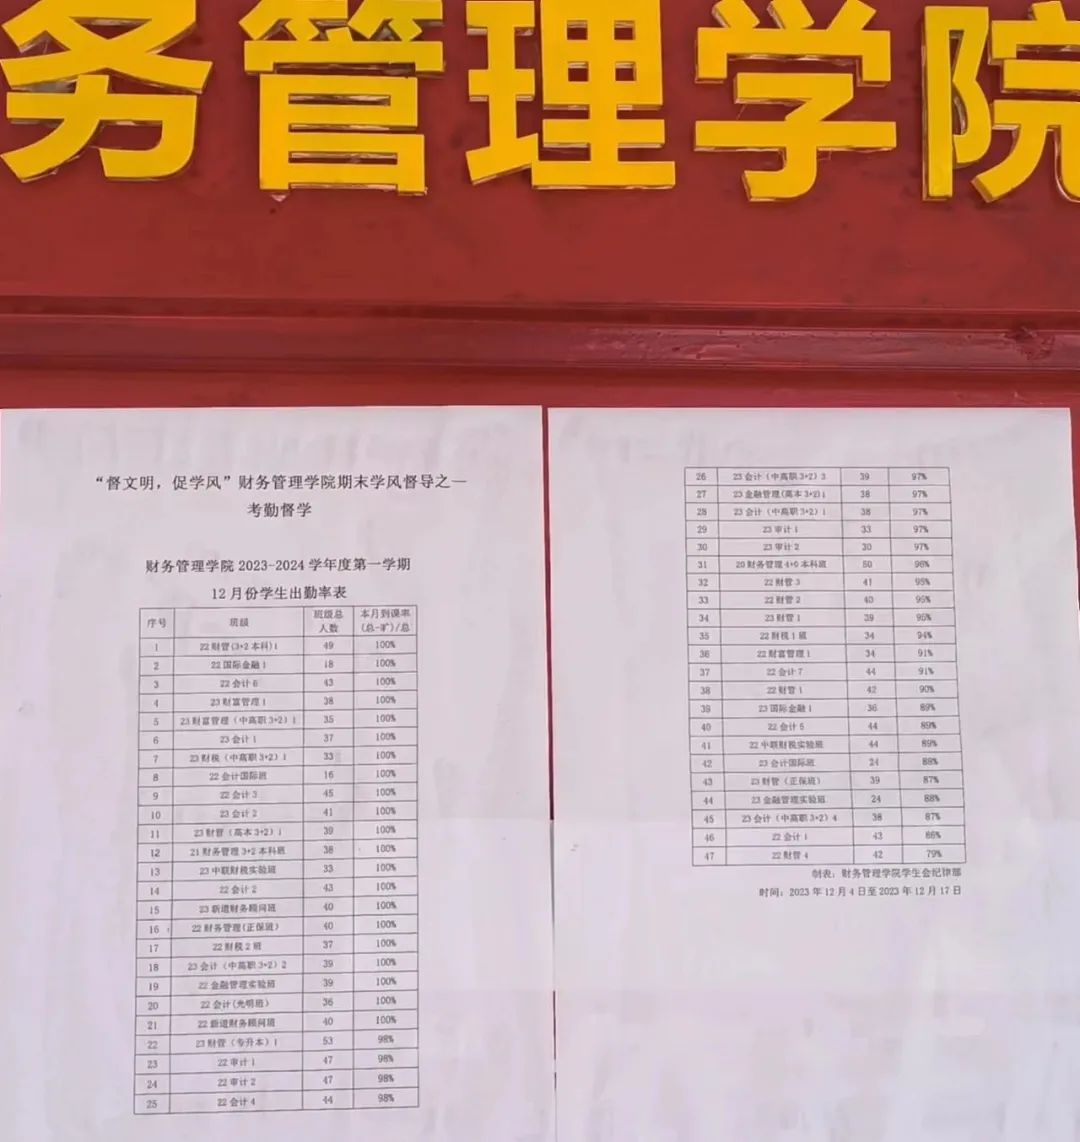 务管理学院
“督文明，促学风”财务管理学院期末学风督导之一
考勤督学
财务管理学院 2023-2024 学年度第一学期
12 月份学生出勤率表
序号 班级 班级总人数 本月到课率(总-旷)/总
1 22 财管(3+2 本科)1 49 100%
2 22 国际金融 1 18 100%
3 22 会计 6 43 100%
4 23 财富管理 1 38 100%
5 23 财富管理（中高职 3+2）1 35 100%
6 23 会计 1 37 100%
7 23 财税（中高职 3+2）1 33 100%
8 22 会计国际班 16 100%
9 22 会计 3 45 100%
10 23 会计 2 41 100%
11 23 财管（高本 3+2）1 39 100%
12 21 财务管理 3+2 本科班 38 100%
13 23 中联财税实验班 33 100%
14 22 会计 2 43 100%
15 23 新道财务顾问班 40 100%
16 22 财务管理(正保班) 40 100%
17 22 财税 2 班 37 100%
18 23 会计（中高职 3+2）2 39 100%
19 22 金融管理实验班 39 100%
20 22 会计(光明班) 36 100%
21 22 新道财务顾问班 40 100%
22 23 财管（专升本）1 53 98%
23 22 审计 1 47 98%
24 22 审计 2 47 98%
25 22 会计 4 44 98%
26 23 会计（中高职 3+2）3 39 97%
27 23 金融管理(高本 3+2)1 38 97%
28 23 会计（中高职 3+2）1 38 97%
29 23 审计 1 33 97%
30 23 审计 2 30 97%
31 20 财务管理 4+0 本科班 50 96%
32 22 财管 3 41 95%
33 22 财管 2 40 95%
34 23 财管 1 39 95%
35 22 财税 1 班 34 94%
36 22 财富管理 1 34 91%
37 22 会计 7 44 91%
38 22 财管 1 42 90%
39 23 国际金融 1 36 89%
40 22 会计 5 44 89%
41 22 中联财税实验班 44 89%
42 23 会计国际班 24 88%
43 23 财管（正保班） 39 87%
44 23 金融管理实验班 24 88%
45 23 会计（中高职 3+2）4 38 87%
46 22 会计 1 43 86%
47 22 财管 4 42 79%
制表：财务管理学院学生会纪律部
时间：2023 年 12 月 4 日至 2023 年 12 月 17 日